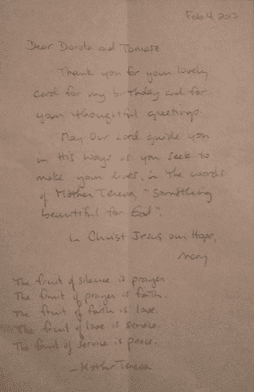 Feb 4 2012
Dear Dorota and Tomasz
Thank you for your lovely
card for my birthday and for
your thoughtful greetings.
May Our Lord guide you
in His ways as you seek to
make your lives, in the words
of Mother Teresa, "something
beautiful for God".
In Christ Jesus our Hope,
The fruit of silence is prayer.
The fruit of prayer is faith.
The fruit of faith is love.
The fruit of love is service.
The fruit of service is peace.
- Mother Teresa